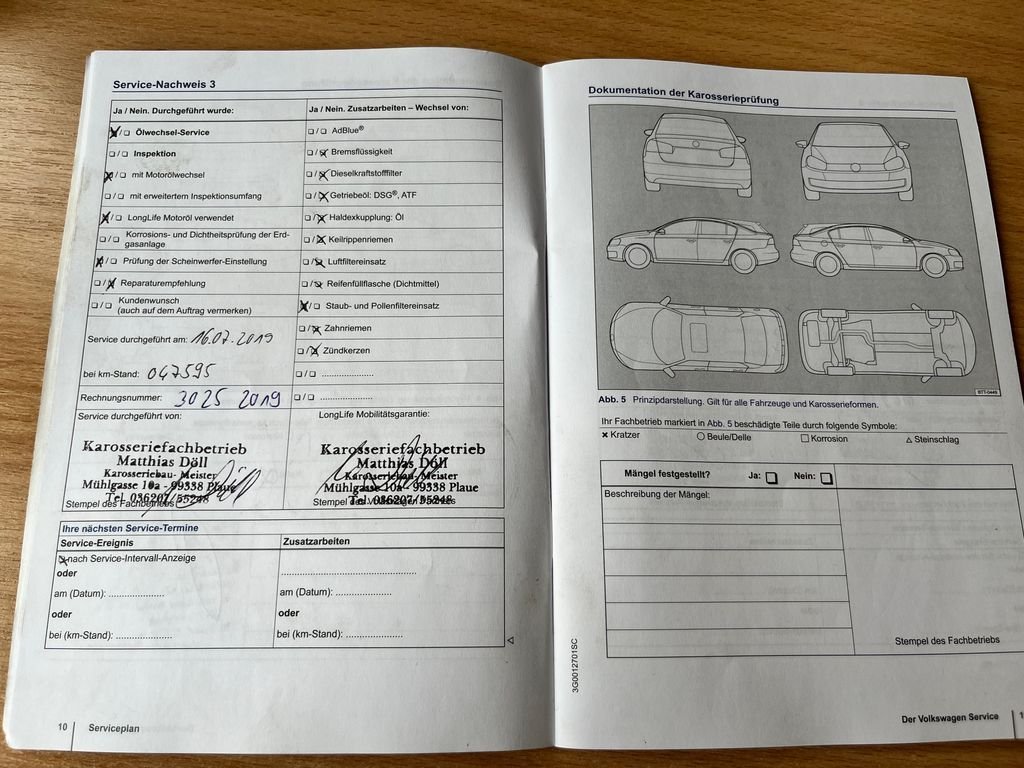 Service-Nachweis 3
Ja / Nein. Durchgeführt wurde:
☒/☐ Ölwechsel-Service
☐/☐ Inspektion
☒/☐ mit Motorölwechsel
☐/☐ mit erweitertem Inspektionsumfang
☒/☐ LongLife Motoröl verwendet
☐/☐ Korrosions- und Dichtheitsprüfung der Erd-
gasanlage
☒/☐ Prüfung der Scheinwerfer-Einstellung
☐/☒ Reparaturempfehlung
☐/☐ Kundenwunsch
(auch auf dem Auftrag vermerken)
Service durchgeführt am: 16.07.2019
bei km-Stand: 047595
Rechnungsnummer: 3025 2019
Ja / Nein. Zusatzarbeiten – Wechsel von:
☐/☐ AdBlue®
☐/☒ Bremsflüssigkeit
☐/☒ Dieselkraftstofffilter
☐/☒ Getriebeöl: DSG®, ATF
☐/☒ Haldexkupplung: Öl
☐/☒ Keilrippenriemen
☐/☒ Luftfiltereinsatz
☐/☒ Reifenfüllflasche (Dichtmittel)
☒/☐ Staub- und Pollenfiltereinsatz
☐/☒ Zahnriemen
☐/☒ Zündkerzen
☐/☐ .....................
☐/☐ .....................
Service durchgeführt von:
Karosseriefachbetrieb
Matthias Döll
Karosseriebau- Meister
Mühlgasse 10a - 99338 Plaue
Tel. 036207/55248
Stempel des Fachbetriebes
LongLife Mobilitätsgarantie:
Karosseriefachbetrieb
Matthias Döll
Karosseriebau- Meister
Mühlgasse 10a - 99338 Plaue
Tel. 036207/55248
Ihre nächsten Service-Termine
Service-Ereignis
☒ nach Service-Intervall-Anzeige
oder
am (Datum): .....................
oder
bei (km-Stand): .....................
Zusatzarbeiten
.....................
am (Datum): .....................
oder
bei (km-Stand): .....................
10 Serviceplan
Dokumentation der Karosserieprüfung
BTT-0449
Abb. 5 Prinzipdarstellung. Gilt für alle Fahrzeuge und Karosserieformen.
Ihr Fachbetrieb markiert in Abb. 5 beschädigte Teile durch folgende Symbole:
× Kratzer ○ Beule/Delle □ Korrosion △ Steinschlag
Mängel festgestellt? Ja: ☐ Nein: ☐
Beschreibung der Mängel:
Stempel des Fachbetriebs
3G0012701SC
Der Volkswagen Service